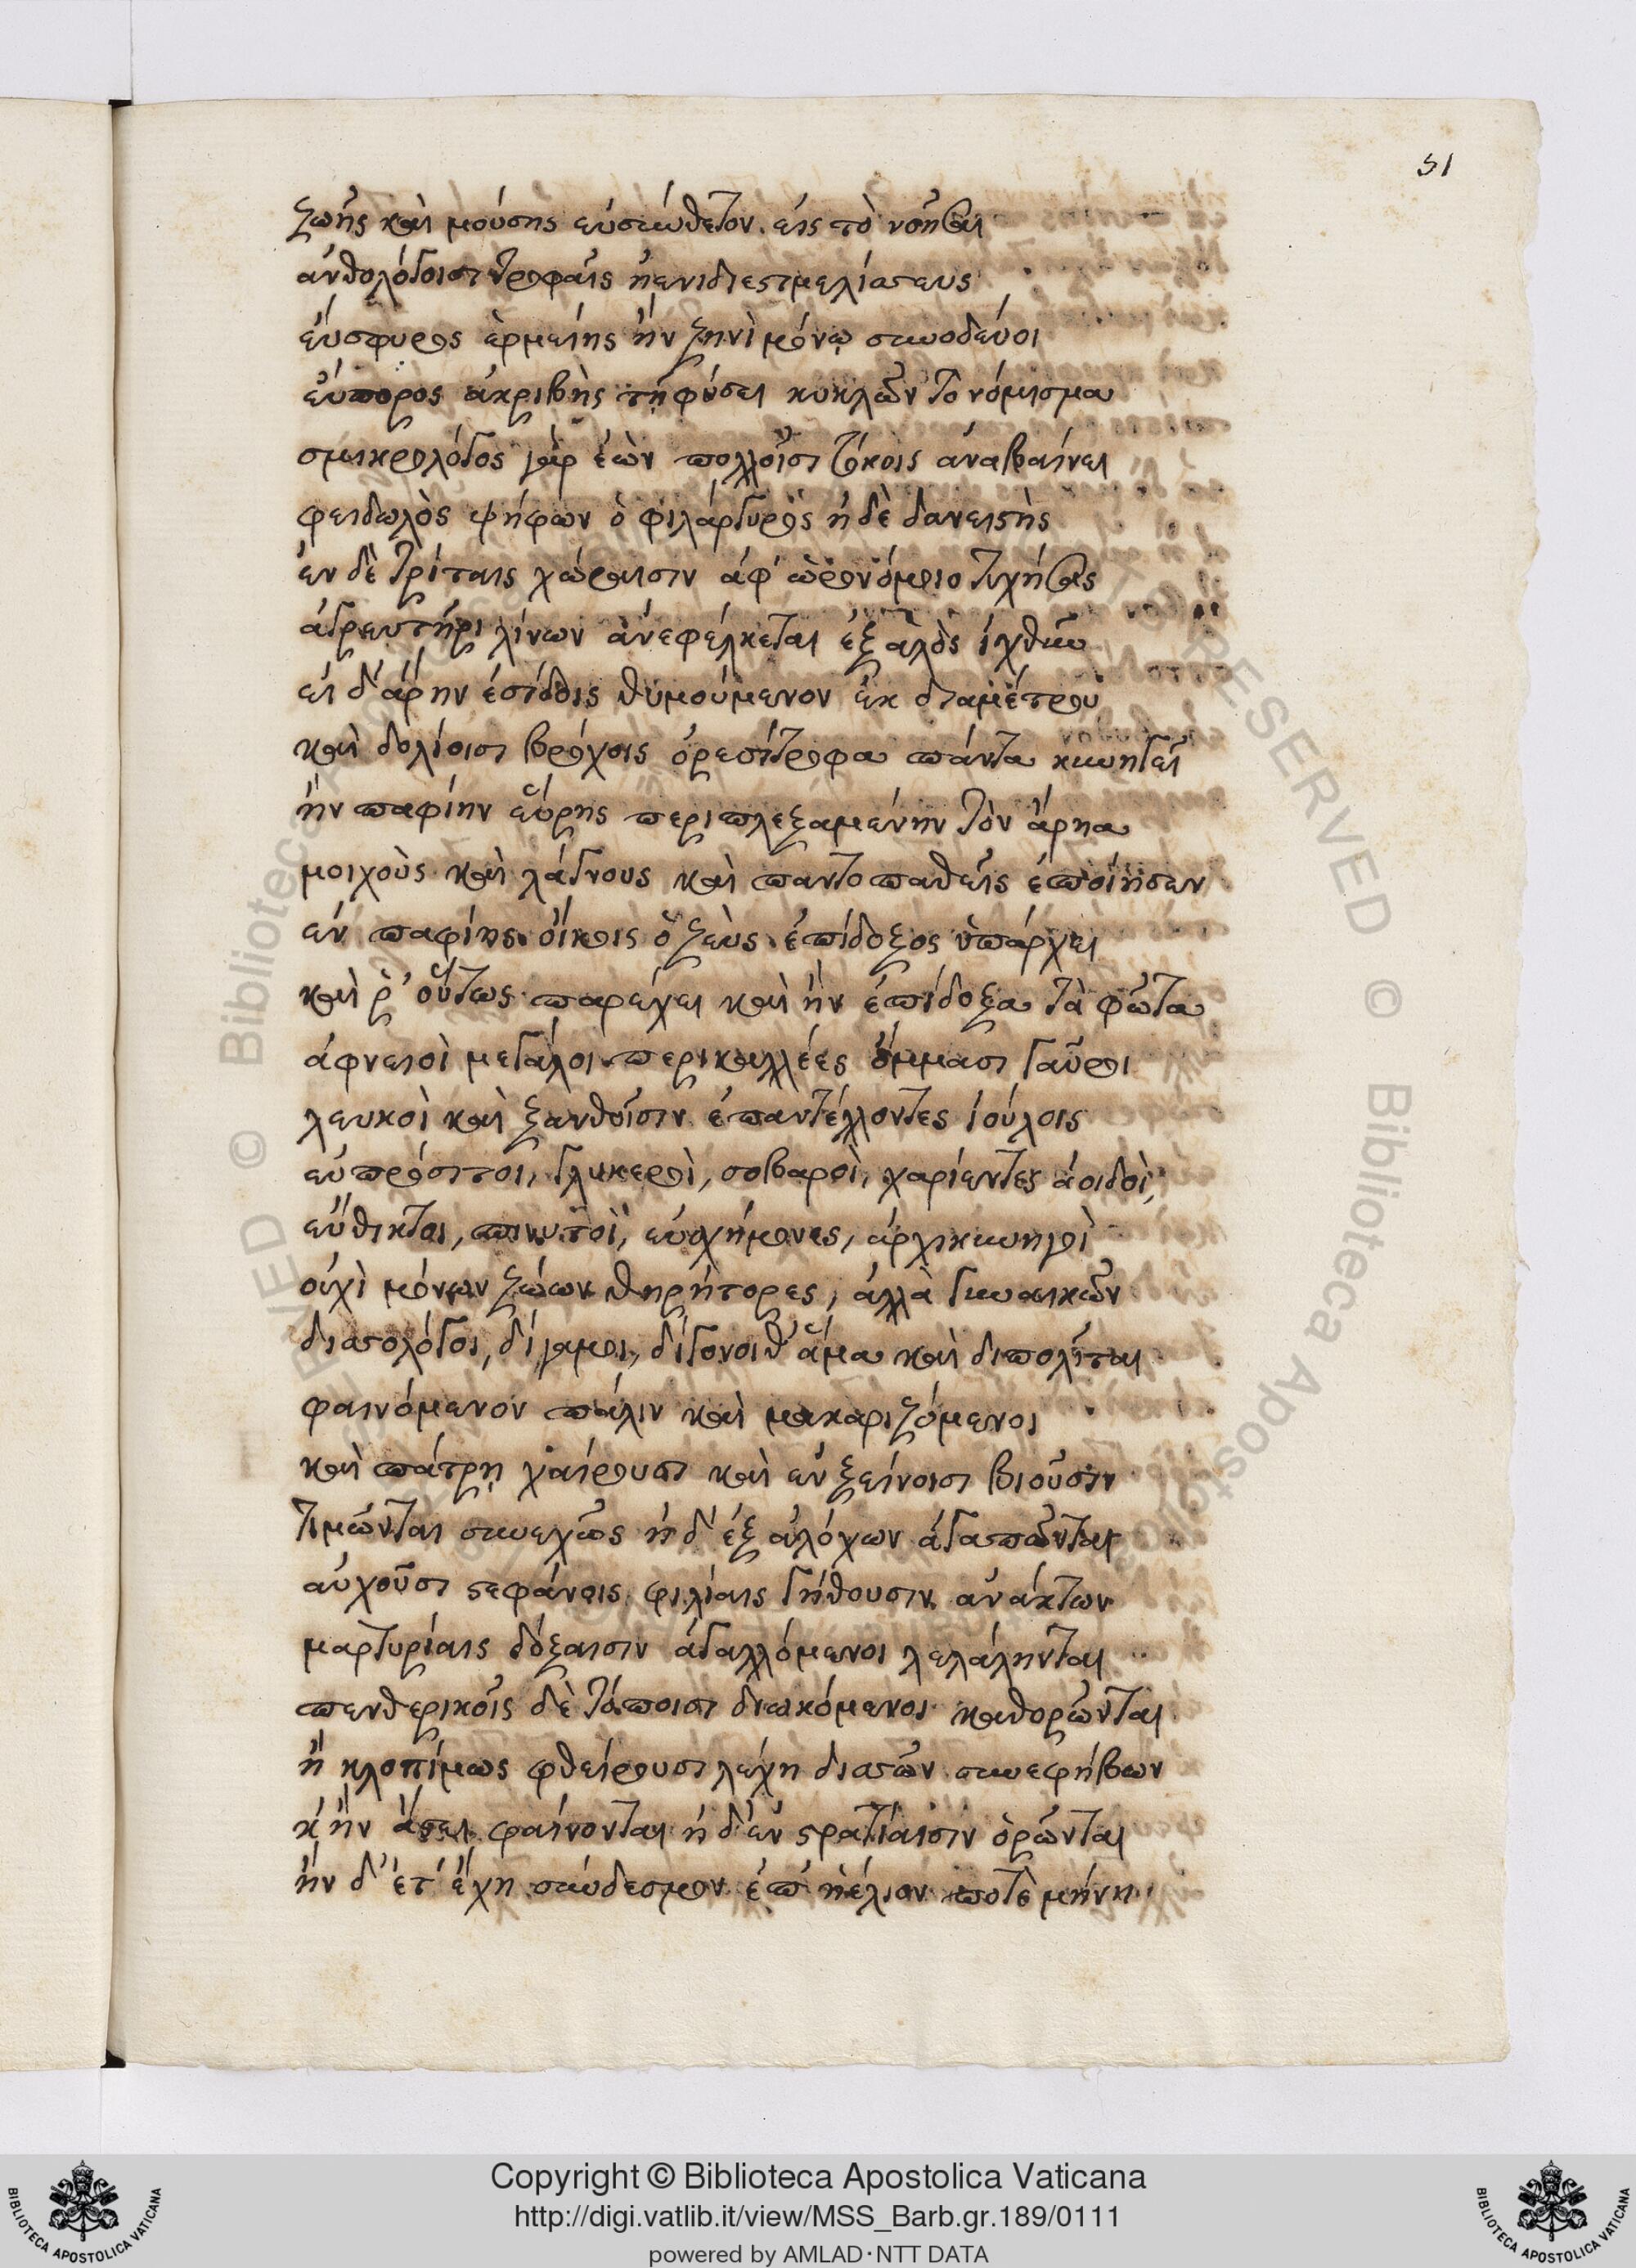 51
ζωῆς καὶ μούσης εὐσύνθετον εἰς τὸ νοῆσαι
ἀνθολόγοισι τροφαῖς
εὔσφυρος ἑρμείης ἢν ζηνὶ μόνῳ συνοδεύοι
εὔπορος ἀκριβὴς τῇ φύσει κυκλῶν το νόμισμα
σμικρολόγος γὰρ ἐὼν πολλοῖσι τόκοις ἀναβαίνει
φειδωλὸς ψήφων ὁ φιλάργυρος ἠ δὲ δανειστὴς
ἐν δὲ τρίταις χώραισιν ἀφ' ὡρονόμοιο τυχήσας
ἀγρευτῆρι λίνων ἀνεφέλκεται ἐξ ἁλὸς ἰχθῦν
εἰ δ' ἄρην ἐσίδοις θυμούμενον ἐκ διαμέτρου
καὶ δολίοισι βρόχοις ὀρεσίτροφα πάντα κυνηγεῖ
ἢν παφίην εὕρῃς περιπλεξαμένην τὸν ἄρηα
μοιχοὺς καὶ λάγνους καὶ παντοπαθεῖς ἐποίησεν
ἐν παφίης οἴκοις ὁ ζεὺς ἐπίδοξος ὑπάρχει
καὶ ῥ' οὕτως παρέχει καὶ ἢν ἐπίδοξα τὰ φῶτα
ἀφνειοὶ μεγάλοι περικαλλέες ὄμμασι γαῦροι
λευκοὶ καὶ ξανθοῖσιν ἐπαντέλλοντες ἰούλοις
εὐπρόσιτοι, γλυκεροὶ, σοβαροὶ, χαρίεντες ἀοιδοὶ,
εὔθικτοι, πινυτοὶ, εὐσχήμονες, ἀρχικυνηγοὶ
οὐχὶ μόνων ζώων θηρήτορες, ἀλλὰ γυναικῶν
δισσολόγοι, δίγαμοι, δίγονοι θ' ἅμα καὶ διπολῖται
φαινόμενον πάλιν καὶ μακαριζόμενοι
καὶ πάτρῃ χαίρουσι καὶ ἐν ξείνοισι βιοῦσιν
τιμῶνται συνεχῶς ἠ δ' ἐξ ἀλόχων ἀγαπῶνται
αὐχοῦσι στεφάνοις φιλίαις γήθουσιν ἀνάκτων
μαρτυρίαις δόξαισιν ἀγαλλόμενοι λελάληνται
πενθερικοῖς δὲ τόποισι διωκόμενοι καθορῶνται
ἢ κλοπίμως φθείρουσι λέχη δισσῶν συνεφήβων
κἢν ἄστει φαίνονται ἠ δ' ἐν στρατίαισιν ὁρῶνται
ἢν δ' ἔτ' ἔχῃ σύνδεσμον ἐπ' ἠέλιον ποτὲ μήνη
Copyright © Biblioteca Apostolica Vaticana
http://digi.vatlib.it/view/MSS_Barb.gr.189/0111
powered by AMLAD·NTT DATA